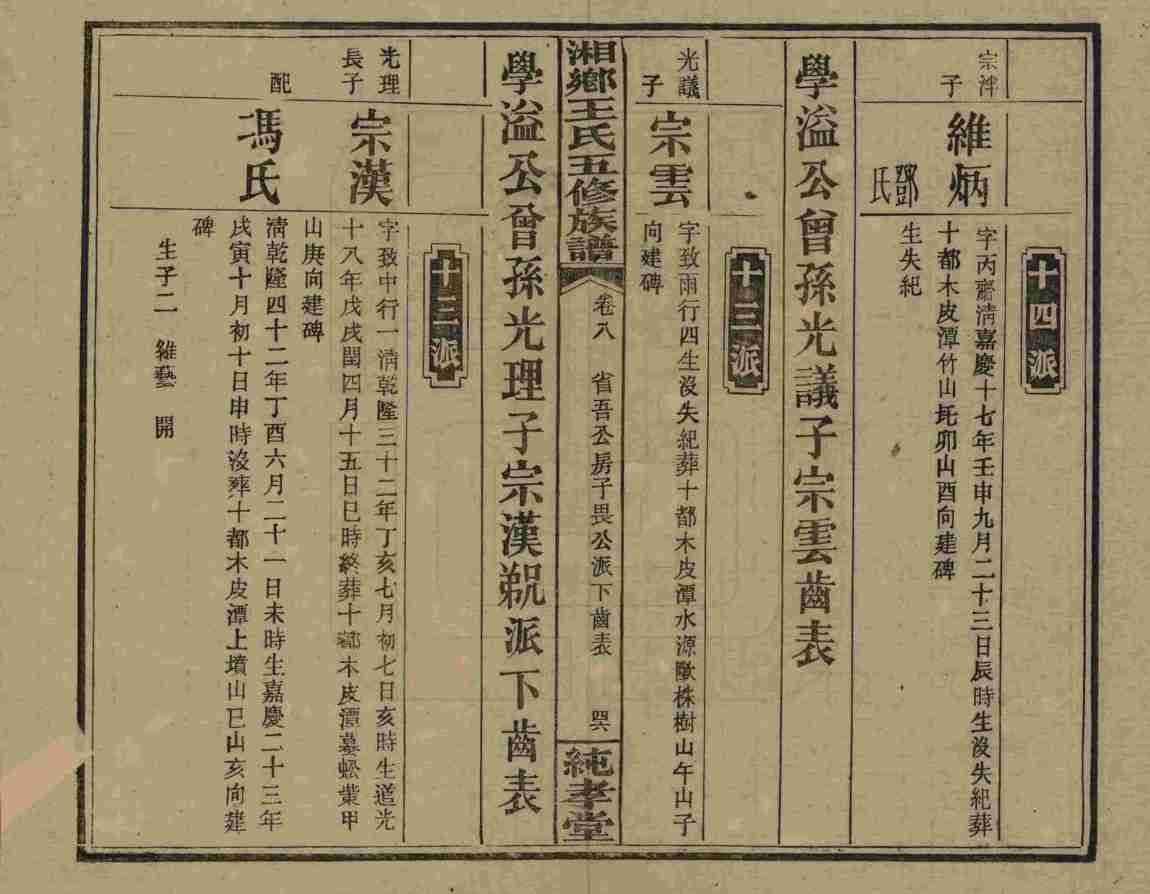 十四派
宗泮
子
維炳
字丙齋清嘉慶十七年壬申九月二十三日辰時生沒失紀葬
十都木皮潭竹山圫卯山酉向建碑
鄧氏
生失紀
學溢公曾孫光議子宗雲齒表
十三派
光議
子
宗雲
字致雨行四生沒失紀葬十都木皮潭水源株樹山午山子
向建碑
湘鄉王氏五修族譜
卷八
省吾公房子畏公派下齒表
純孝堂
學溢公曾孫光理子宗漢派下齒表
十三派
光理
長子
宗漢
字致中行一清乾隆三十二年丁亥七月初七日亥時生道光
十八年戊戌閏四月十五日巳時終葬十都木皮潭墓蚣業甲
山庚向建碑
配
馮氏
清乾隆四十二年丁酉六月二十一日未時生嘉慶二十三年
戊寅十月初十日申時沒葬十都木皮潭上墳山巳山亥向建
碑
生子二 維藝 開